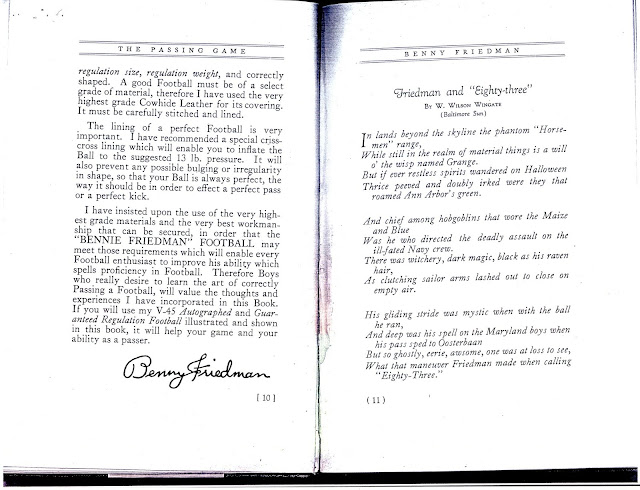 THE PASSING GAME
regulation size, regulation weight, and correctly
shaped. A good Football must be of a select
grade of material, therefore I have used the very
highest grade Cowhide Leather for its covering.
It must be carefully stitched and lined.
The lining of a perfect Football is very
important. I have recommended a special criss-
cross lining which will enable you to inflate the
Ball to the suggested 13 lb. pressure. It will
also prevent any possible bulging or irregularity
in shape, so that your Ball is always perfect, the
way it should be in order to effect a perfect pass
or a perfect kick.
I have insisted upon the use of the very high-
est grade materials and the very best workman-
ship that can be secured, in order that the
"BENNIE FRIEDMAN" FOOTBALL may
meet those requirements which will enable every
Football enthusiast to improve his ability which
spells proficiency in Football. Therefore Boys
who really desire to learn the art of correctly
Passing a Football, will value the thoughts and
experiences I have incorporated in this Book.
If you will use my V-45 Autographed and Guar-
anteed Regulation Football illustrated and shown
in this book, it will help your game and your
ability as a passer.
Benny Friedman
[ 10 ]
BENNY FRIEDMAN
Friedman and "Eighty-three"
BY W. WILSON WINGATE
(Baltimore Sun)
In lands beyond the skyline the phantom "Horse-
men" range,
While still in the realm of material things is a will
o' the wisp named Grange.
But if ever restless spirits wandered on Halloween
Thrice peeved and doubly irked were they that
roamed Ann Arbor's green.
And chief among hobgoblins that wore the Maize
and Blue
Was he who directed the deadly assault on the
ill-fated Navy crew.
There was witchery, dark magic, black as his raven
hair,
As clutching sailor arms lashed out to close on
empty air.
His gliding stride was mystic when with the ball
he ran,
And deep was his spell on the Maryland boys when
his pass sped to Oosterbaan
But so ghostly, eerie, awsome, one was at loss to see,
What that maneuver Friedman made when calling
"Eighty-Three."
(11)